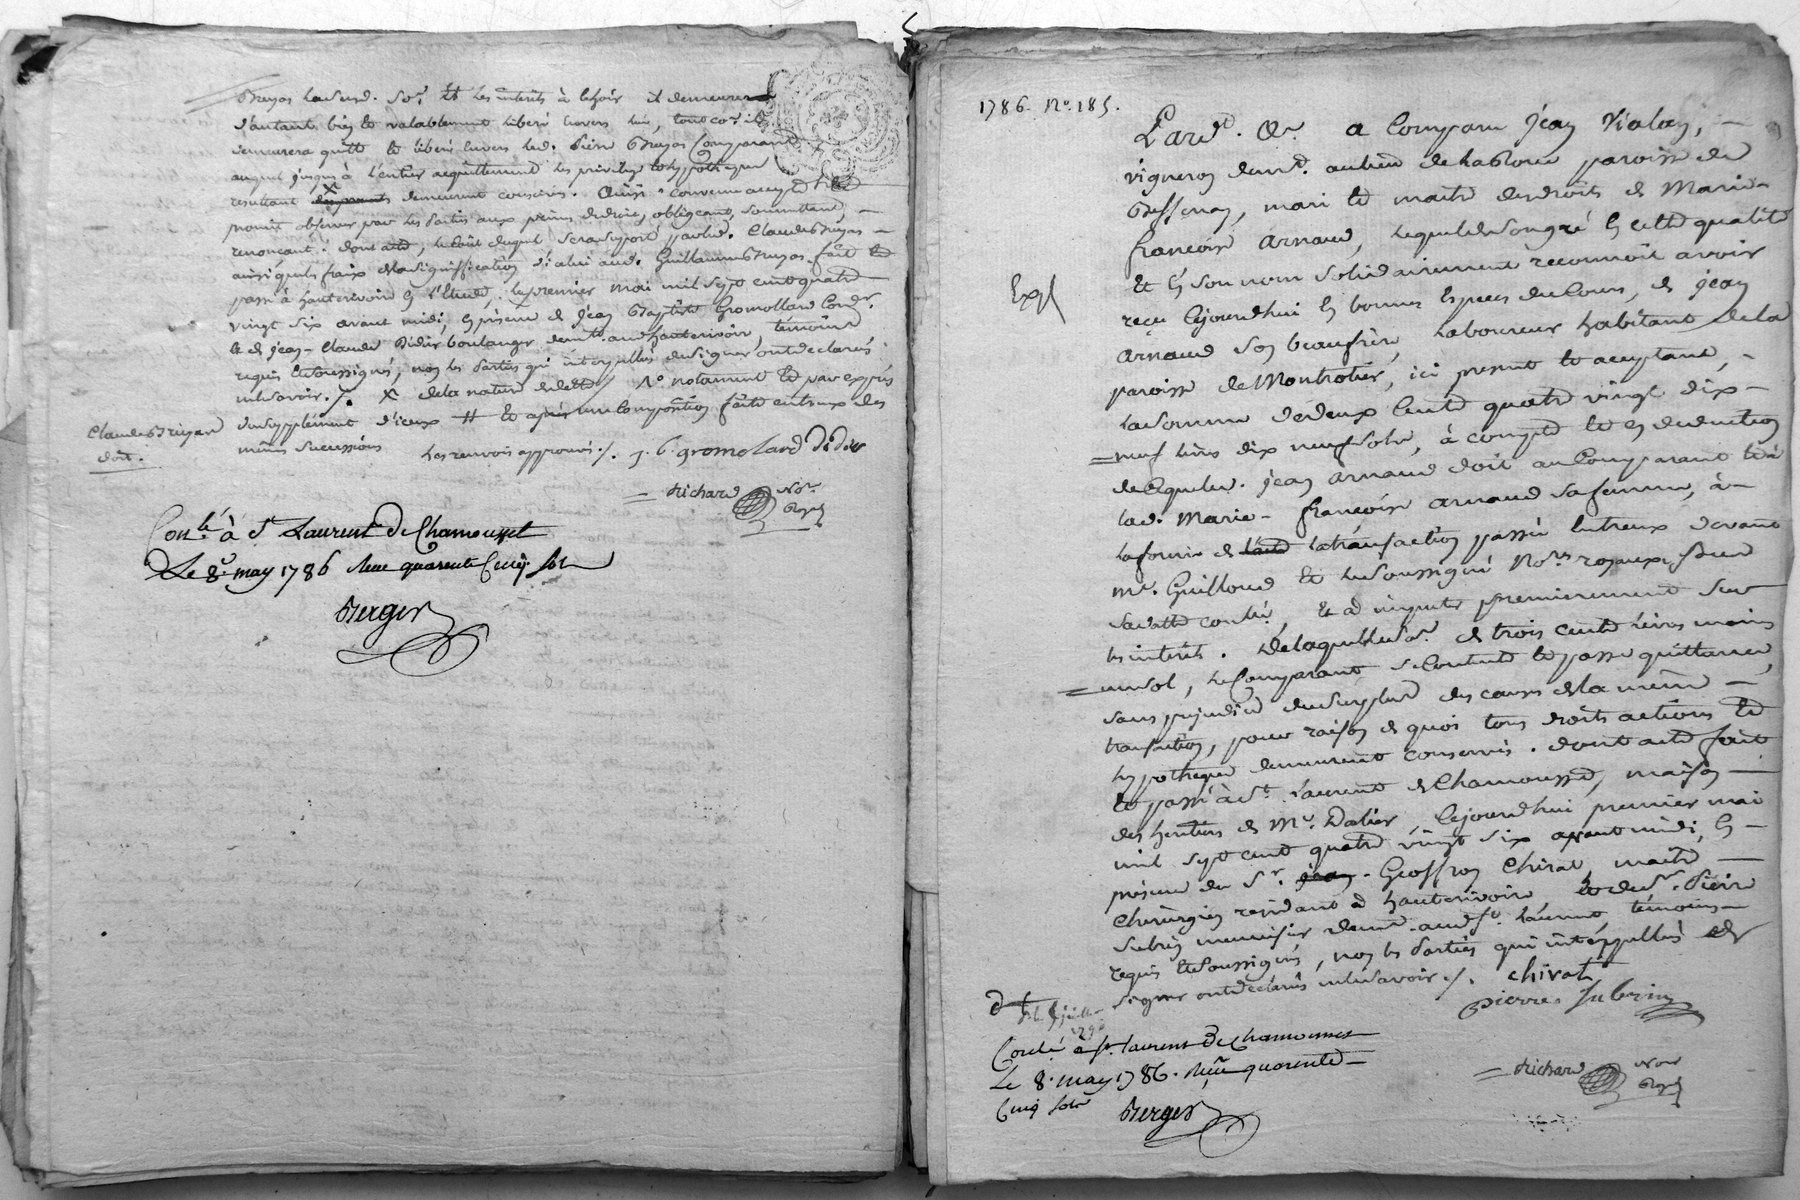 Bruyas ladite. so.e et les intérêts à lechoir il demeurera
d'autant bien et valablement libéré envers lui, tout co.e il
demeurera quitte et libéré envers led. Pierre Bruyas Comparant
auquel jusques à l'entier acquittement les privilege et hypotheque
resultant demeurent conservés. Ainsi convenu accepté
promit observer par les Parties aux peines de droit, obligeant, soumettant,
renonçant. dont acte, le coût duquel sera supporté par led. Claude Bruyas
ainsi que les fraix de la signiffication d'icelui aud. Guillaume Bruyas fait et
passé à hauterivoire en l'Etude, le premier mai mil sept cent quatre
vingt six avant midi, en présence de Jean Baptiste Gromollard Cord.r
et de Jean-Claude Didier boulanger demt. aud. hauterivoire, témoins
requis et soussignés, non les Parties qui interpellées de signer ont déclaré
ne le savoir ./. X de la nature de dette / No notament et par exprès
du supplément d'iceux # et après une Composition faite entr'eux des
mêmes successions les renvois approuvés ./. j. b. gromolard Didier
Claude Bruyas
doit.
Richard No.re
Royal
Con.lé à St Laurent De Chamousset
Le 8. may 1786 Reçu quarente Cinq sols
Berger
1786. No. 185.
Pardt. &c. a Comparu Jean Vialay,
vigneron demt. au lieu de paroisse de
Bessenay, mari et maître des droits de Marie
françoise Arnaud, lequel de son gré en cette qualité
Et en son nom solidairement reconnoit avoir
reçu cejourdhui en bonnes Especes du Cours, de Jean
Arnaud son beaufrère, laboureur habitant de la
Expé
paroisse de Montrotier, ici present et acceptant,
la somme de deux Cents quatre vingt dix
neuf livres dix neuf sols, à compte et en deduction
de ce que led. Jean Arnaud doit au Comparant et à
lad. Marie - françoise Arnaud sa femme, à
la forme de la transaction passée Entreux devant
Me. Guilloud et le soussigné No.res royaux, sur
sa datte conlée, Et à imputer premierement sur
les intérêts. De laquelle so.e de trois cents livres moins
un sol, le Comparant se contente et passe quittance,
sans prejudice du surplus des causes de la même
transaction, pour raison de quoi tous droits actions et
hypotheques demeurent conservés. dont acte fait
et passé à St. Laurent de Chamousset, maison
des heritiers de Me. Dalier, Cejourdhui premier mai
mil sept cent quatre vingt six avant midi, En
présence du Sr. Jean. Geoffroy Chirat, maître
Chirurgien residant à hauterivoire et de Sr. Pierre
Subrin menuisier demt. aud. St. Laurent témoins
requis et soussignés, non les Parties qui interpellées de
signer ont déclaré ne le savoir ./. chirat
Pierre Subrin
Conlé à St. Laurent De Chamousset
Le 8. may 1786. Reçu quarente
Cinq sols
Berger
Richard No.re
Royal